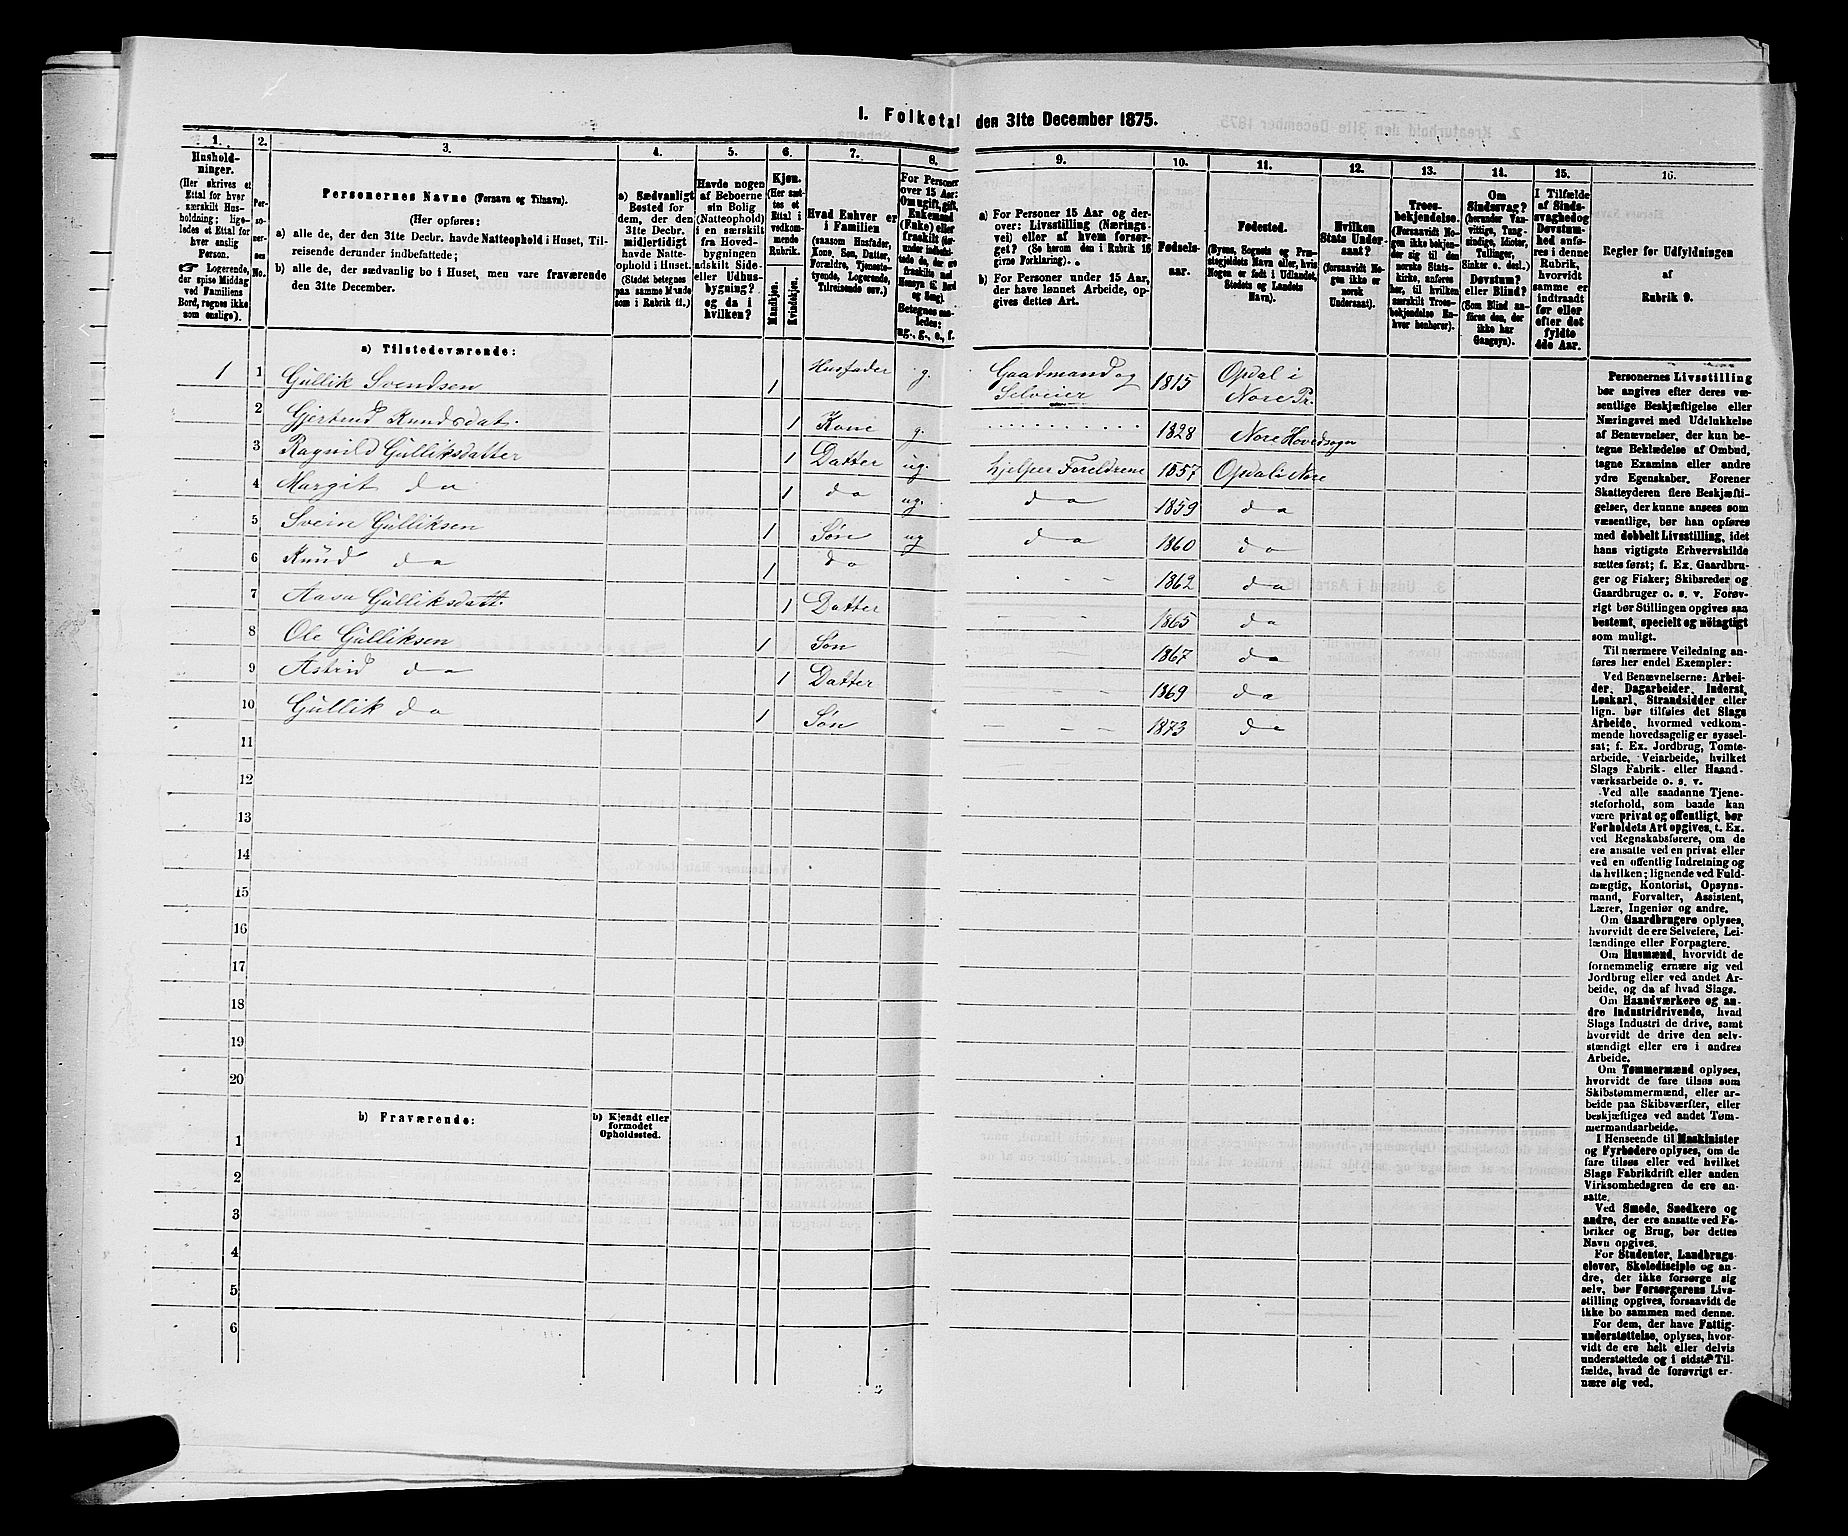 I. Folketal den 31te December 1875.
1.
Hushold-
ninger.
(Her skrives et
Ettal for hver
særskilt Hus-
holdning; lige-
ledes et Ettal for
hver enslig
Person.
☞ Logerende,
der spise Middag
ved Familiens
Bord, regnes ikke
som enslige).
2.
Per-
so-
ner-
nes
No.
3.
Personernes Navne (Fornavn og Tilnavn).
(Her opføres:
a) alle de, der den 31te Decbr. havde Natteophold i Huset, Til-
reisende derunder indbefattede;
b) alle de, der sædvanlig bo i Huset, men vare fraværende
den 31te December.
4.
a) Sædvanligt
Bosted for
dem, der den
31te Decbr.
midlertidigt
havde Natte-
ophold i Huset.
(Stedet betegnes
paa samme Maade
som i Rubrik 11.)
5.
Havde nogen
af Beboerne
sin Bolig
(Natteophold)
i en særskilt
fra Hoved-
bygningen
adskilt Side-
eller Udhus-
bygning?
og da i
hvilken?
6.
Kjøn.
(Her sæt-
tes et
Ettal i
vedkom-
mende
Rubrik.
Mandkjøn.
Kvindekjøn.
7.
Hvad Enhver er
i Familien
(saasom Husfader,
Kone, Søn, Datter,
Forældre, Tjeneste-
tyende, Logerende,
Tilreisende osv.)
8.
For Personer
over 15 Aar:
Om ugift, gift,
Enkemand
(Enke) eller
fraskilt
Betegnes saa-
ledes:
ug., g., e., f.
9.
a) For Personer 15 Aar og der-
over: Livsstilling (Nærings-
vei) eller af hvem forsør-
get? (Se herom den i Rubrik 16
givne Forklaring).
b) For Personer under 15 Aar,
der have lønnet Arbeide, op-
gives dettes Art.
10.
Fødsels-
aar.
11.
Fødested.
(Byens, Sognets og Præ-
stegjeldets Navn eller, hvis
Nogen er født i Udlandet,
Stedets og Landets
Navn).
12.
Hvilken
Stats Under-
saat?
(forsaavidt No-
gen ikke er
norsk
Undersaat).
13.
Troes-
bekjendelse.
(Forsaavidt No-
gen ikke bekjen-
der sig til den
norske Stats-
kirke, anføres
her, til hvilken
særskilt Troes-
bekjendelse En-
hver henhører).
14.
Om
Sindssvag?
(herunder Van-
vittige, Tung-
sindige, Idioter,
Tullinger,
Sinker o. desl.)
Døvstum?
eller Blind?
(Som Blind an-
føres den, der
ikke har
Gangsyn).
15.
I Tilfælde
af Sinds-
svaghed og
Døvstum-
hed anfø-
res i denne
Rubrik,
hvorvidt
samme er
indtraadt
før eller
efter det
fyldte
4de Aar.
16.
Regler for Udfyldningen
af
Rubrik 9.
a) Tilstedeværende:
1 1 Gullik Svendsen 1 Husfader g. Gaardmand og Selveier 1815 Opdal i Nore Pr.
2 Gjertrud Knudsdat. 1 Kone g. 1828 Nore Hovedsogn
3 Ragnild Gulliksdatter 1 Datter ug. hjelper Foreldrene 1857 Opdal i Nore
4 Margit do 1 do ug. do 1859 do
5 Svein Gulliksen 1 Søn ug do 1860 do
6 Knud do 1 do - - 1862 do
7 Aasa Gulliksdatt. 1 Datter - - 1865 do
8 Ole Gulliksen 1 Søn 1867 do
9 Astrid do 1 Datter - - 1869 do
10 Gullik do 1 Søn - - 1873 do
11
12
13
14
15
16
17
18
19
20
b) Fraværende:
b) Kjendt eller
formodet
Opholdssted.
1
2
3
4
5
6
Personernes Livsstilling
bør angives efter deres væ-
sentlige Beskjæftigelse eller
Næringsvei med Udelukkelse
af Benævnelser, der kun be-
tegne Beklædelse af Ombud,
tagne Examina eller andre
ydre Egenskaber. Forener
Skatteyderen flere Beskjæfti-
gelser, der kunne ansees som
væsentlige, bør han opføres
med dobbelt Livsstilling, idet
hans vigtigste Erhvervskilde
sættes først; f. Ex. Gaardbru-
ger og Fisker; Skibsreder og
Gaardbruger o. s. v. Forøv-
rigt bør Stillingen opgives saa
bestemt, specielt og nöiagtigt
som muligt.
Til nærmere Veiledning an-
føres her endel Exempler:
Ved Benævnelserne: Arbei-
der, Dagarbeider, Inderst,
Løskarl, Strandsidder eller
lign. bør tilføies det Slags
Arbeide, hvormed vedkom-
mende hovedsagelig er syssel-
sat; f. Ex. Jordbrug, Tomte-
arbeide, Veiarbeide, hvilket
Slags Fabrik- eller Haand-
værksarbeide o. s. v.
Ved alle saadanne Tjene-
steforhold, som baade kan
være privat og offentligt, bør
Forholdets Art opgives, t. Ex.
ved Regnskabsførere, om de
ere ansatte ved en privat eller
ved en offentlig Indretning og
da hvilken; lignende ved Fuld-
mægtig, Kontorist, Opsyns-
mand, Forvalter, Assistent,
Lærer, Ingeniør og andre.
Om Gaardbrugere oplyses,
hvorvidt de ere Selveiere, Lei-
lændinge eller Forpagtere.
Om Husmænd, hvorvidt de
fornemmelig ernære sig ved
Jordbrug eller ved andet Ar-
beide, og da af hvad Slags.
Om Haandværkere og an-
dre Industridrivende, hvad
Slags Industri de drive, samt
hvorvidt de drive den selv-
stændigt eller ere i andres
Arbeide.
Om Tømmermænd oplyses,
hvorvidt de fare tilsøs som
Skibstømmermænd, eller ar-
beide paa Skibsværfter, eller
beskjæftiges ved andet Tøm-
mermandsarbeide.
I Henseende til Maskinister
og Fyrbødere oplyses, om de
fare tilsøs eller ved hvilket
Slags Fabrikdrift eller anden
Virksomhedsgren de ere an-
satte.
Ved Smede, Snedkere og
andre, der ere ansatte ved Fa-
briker og Brug, bør dettes
Navn opgives.
For Studenter, Landbrugs-
elever, Skoledisciple og an-
dre, der ikke forsørge sig
selv, bør Forsørgerens Livs-
stilling opgives, forsaavidt de
ikke bo sammen med denne.
For dem, der have Fattig-
understøttelse, oplyses, hvor-
vidt de ere helt eller delvis
understøttede og i sidste Til-
fælde, hvad de forøvrigt er-
nære sig ved.